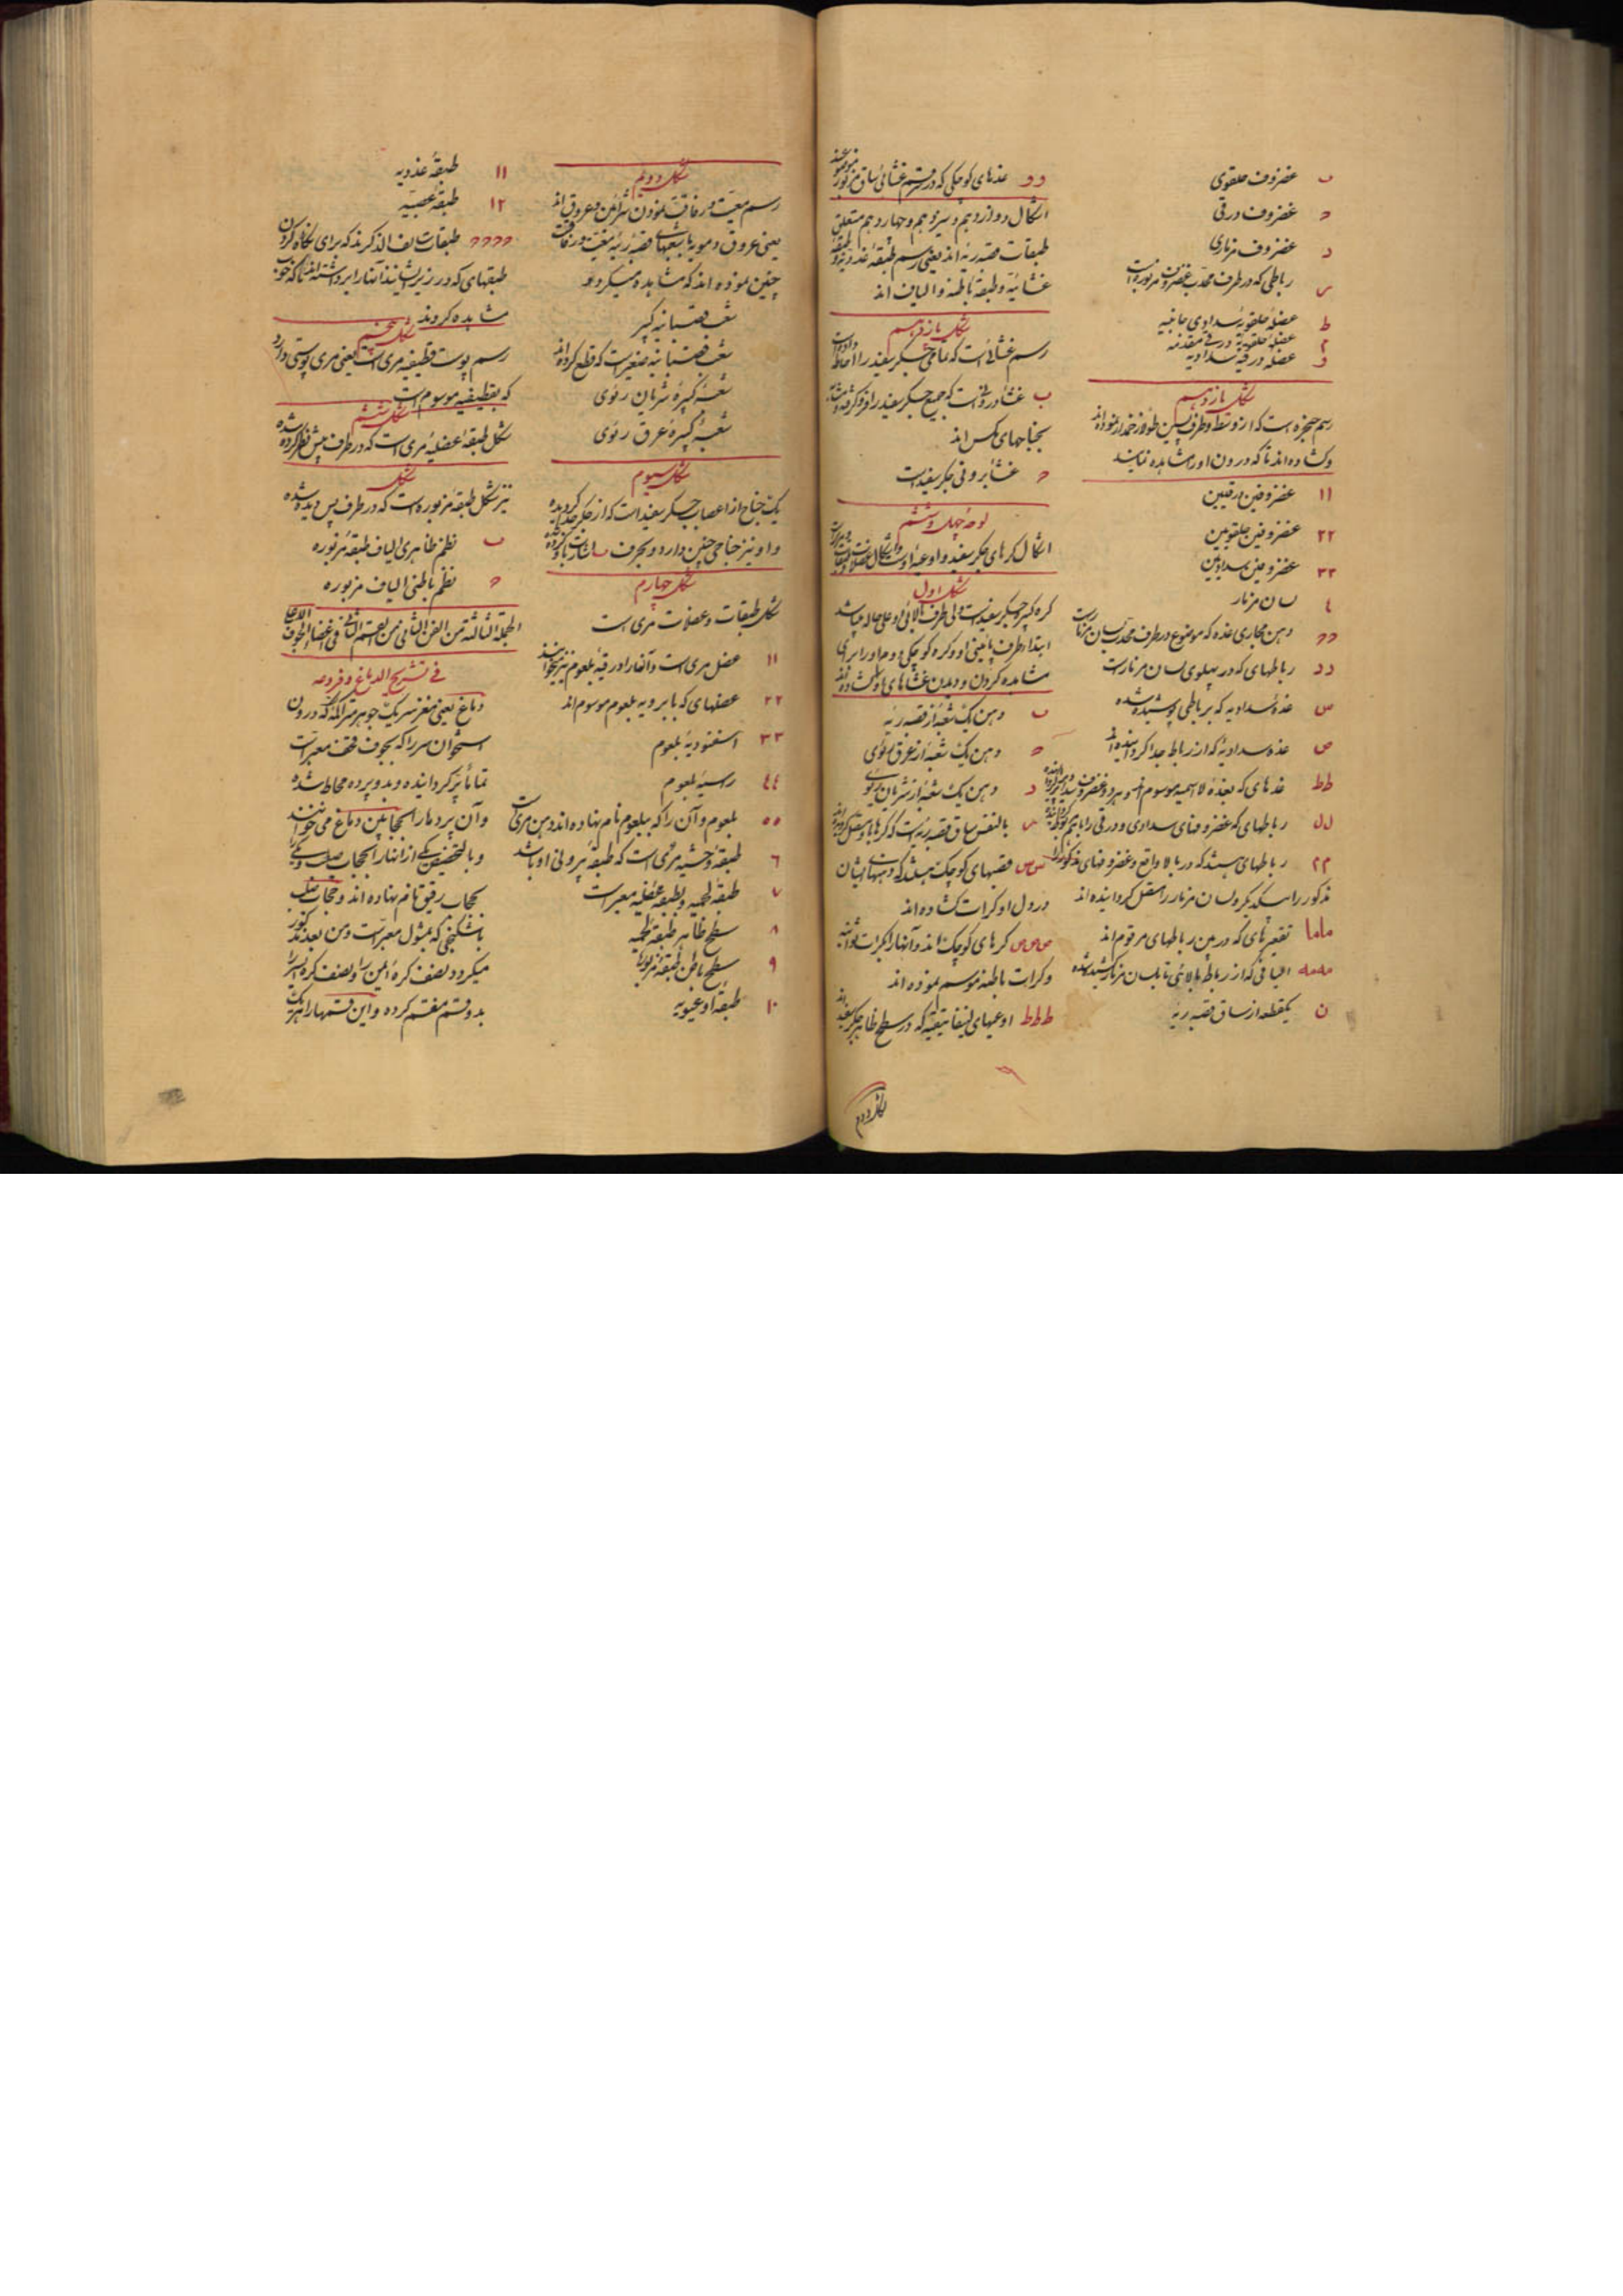 ب غضروف حلقوی
ح غضروف درقی
د غضروف مزماری
س رباطی که در طرف محدب غضروف مزبوره است
ط عضله حلقویه سدادی جانبیه
م عضله حلقویه درقی مقدمه
و عضله درقیه سدادیه
شکل یازدهم
رسم حنجره است که از وسط و طرف پسین طولاً زخمدار نموده‌اند
و کشاده‌اند تا که درون او را مشاهده نمایند
۱۱ غضروفین درقیین
۲۲ غضروفین حلقویین
۳۳ غضروفین سدادیین
٤ لسان مزمار
حح دهن مجاری غده که موضوع در طرف محدب لسان مزمارست
دد رباطهای که در پهلوی لسان مزمارست
ص غدهٔ سدادیه که بر باطی پوشیده شده
ض غده سدادیهٔ که از رباط جدا کردانیده‌اند
طط غدهای که بغدهٔ لاسمیه موسوم
لل رباطهای که غضروفهای سدادی و درقی را باهم
۲۲ رباطهای هستند که در بالا واقع و غضروفهای مذکور را
مذکور را بیکدیگر و لسان مزمار را متصل کردانیده‌اند
ماما تقعیرهای که در بین رباطهای مرقوم‌اند
ههه الیافی که از رباط بالائی تا بلسان مزمار کشیده شده
ن یکقطعه از ساق قصبه ریه
وو غدهای کوچکی که در قسم غشائی ساق مزبور
اشکال دوازدهم و سیزدهم و چهاردهم متعلق
طبقات قصبه ریه‌اند یعنی رسم طبقهٔ غددیه و
غشائیه و طبقهٔ باطنه و الیاف‌اند
شکل یازدهم
رسم غشائی است که تمامی جکر سفید را احاطه
ب غشاء درونی است که جمیع جکر سفید را فرو گرفته
بجناحهای مکس‌اند
ح غشاء برونی جکر سفید است
لوحهٔ چهل و ششم
اشکال کرهای جکر سفید و اوعیهٔ او است و اشکال عضلات
شکل اول
کره کبیر جکر سفیدست ولی طرف بالائی او علی حاله میباشد
ابتدا طرف پائینی او و کره کوچکی دوم او را برای
مشاهده کردن و دیدن غشاهای او کشاده‌اند
ب دهن یک شعبه از قصبه ریه
ح دهن یک شعبه از عرق رئوی
د دهن یک شعبه از شریان رئوی
س بالنفس ساق قصبه ریه است که کرها با او متصل کردیده‌اند
س س قصبهای کوچک هستند که دهنهای ایشان
در دل او کرات کشاده‌اند
ص ص ص کرهای کوچک‌اند و آنها را کرات
و کرات باطنه موسم نموده‌اند
ططط اوعیهای لینفاتیقیه که در سطح ظاهر جکر سفیداند
شکل دویم
شکل دویم
رسم معیت و رفاقت نمودن شرائین و عروق‌اند
یعنی عروق دمویه با شعبهای قصبه ریه معیت و رفاقت
چنین نموده‌اند که مشاهده میکردد
شعب قصبانیه کبیر
شعب قصبانیه صغیرست که قطع کرده‌اند
شعبهٔ کبیرهٔ شریان رئوی
شعبهٔ کبیرهٔ عرق رئوی
شکل سیوم
یک جناح از اعصاب جکر سفید است که از جکر جدا کردیده
و او نیز جناحی چنین دارد و بحرف ب اشارت باو کرده
شکل چهارم
شکل طبقات و عضلات مری است
۱۱ عضل مری است و آنها را درقیهٔ بلعوم نیز میخوانند
۲۲ عضلهای که بابرویه بلعوم موسوم‌اند
۳۳ اسفنودیهٔ بلعوم
٤٤ راسیهٔ بلعوم
۵۵ بلعوم و آن را که ببلعوم نام نهاده‌اند دهن مریست
٦ طبقهٔ وحشیه مری است که طبقهٔ بیرونی او باشد
۷ طبقهٔ لحمیه و بطبقه عضلیه معبرست
۸ سطح ظاهر طبقهٔ لحمیه
۹ سطح باطن طبقهٔ مزبوره
۱۰ طبقهٔ اوعیویه
۱۱ طبقهٔ غددیه
۱۲ طبقهٔ عصبیه
حححح طبقات سالف الذکرند که برای نکاه کردن
طبقهای که در زیر ایشانند آنها را برداشته‌اند تا که خوب
مشاهده کردند
شکل پنجم
رسم پوست قطیفیه مری است یعنی مری پوستی دارد
که بقطیفیه موسوم است
شکل ششم
شکل طبقهٔ عضلیهٔ مری است که در طرف پیش نظر کرده شده
شکل
نیز شکل طبقهٔ مزبوره است که در طرف پس دیده شده
ب نظم ظاهری الیاف طبقهٔ مزبوره
ح نظم باطنی الیاف مزبوره
الجملة الثالثة من الفن الثانی من القسم الثانی فی اعضاء الجوف الاعلی
فی تشریح الدماغ و فروعه
دماغ یعنی مغز سر یک جوهر متراکمه که درون
استخوان سر را که بجوف قحف معبرست
تماماً پر کردانیده و بدو پرده محاط شده
و آن پردها را حجابین دماغ می‌خوانند
و بالتخصیص یکی از انها را بحجاب صلب و یکی
بحجاب رقیق نام نهاده‌اند و حجاب صلب
باشکنجی که بمثول معبرست و من بعد مذکور
میکردد بنصف کره ایمن را و بنصف کره ایسر
بدو قسم منقسم کرده و این قسمها را هر یک